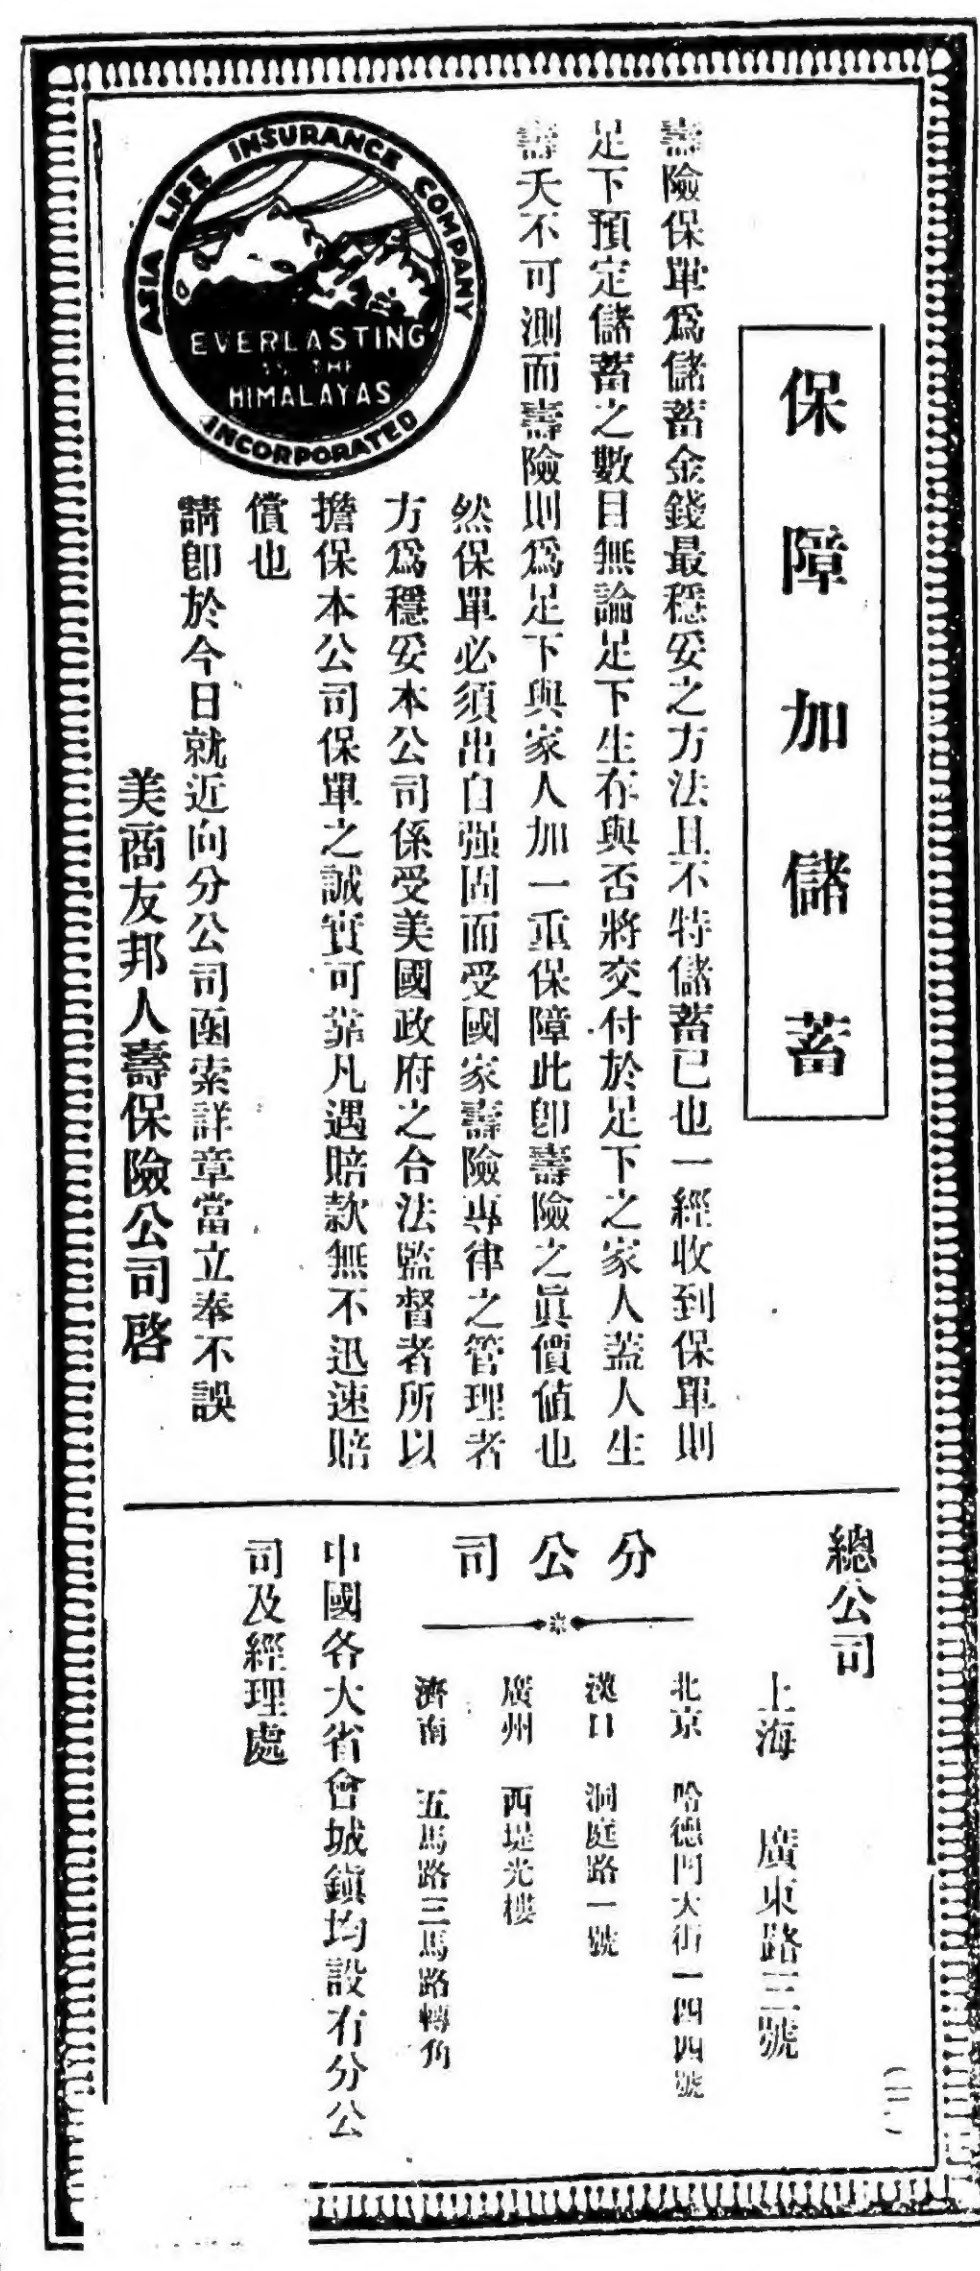 保障加儲蓄
壽險保單爲儲蓄金錢最穩妥之方法且不特儲蓄已也一經收到保單則
足下預定儲蓄之數目無論足下生存與否將交付於足下之家人蓋人生
壽夭不可測而壽險則爲足下與家人加一重保障此卽壽險之眞價値也
然保單必須出自强固而受國家壽險專律之管理者
方爲穩妥本公司係受美國政府之合法監督者所以
擔保本公司保單之誠實可靠凡遇賠款無不迅速賠
償也
請卽於今日就近向分公司函索詳章當立奉不誤
美商友邦人壽保險公司啓
ASIA LIFE INSURANCE COMPANY
EVERLASTING
AS THE
HIMALAYAS
INCORPORATED
總公司
上海 廣東路三號
分公司
北京 哈德門大街一四四號
漢口 洞庭路一號
廣州 西堤光樓
濟南 五馬路三馬路轉角
中國各大省會城鎭均設有分公
司及經理處